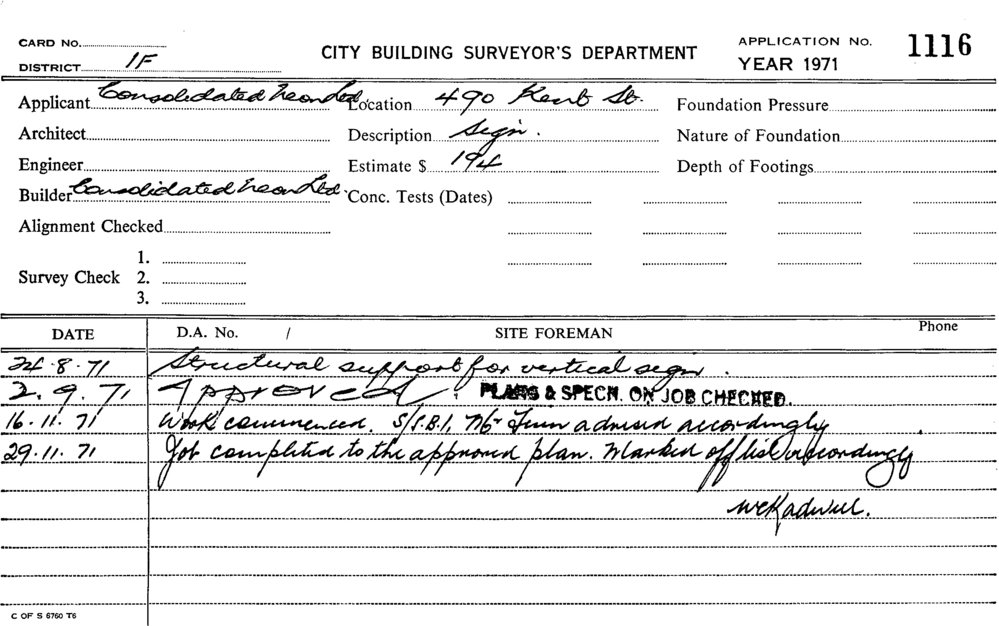 CARD No.
DISTRICT 1F
CITY BUILDING SURVEYOR'S DEPARTMENT
APPLICATION No. 1116
YEAR 1971
Applicant Consolidated Neon Ltd Location 490 Kent St. Foundation Pressure
Architect Description Sign. Nature of Foundation
Engineer Estimate $ 194 Depth of Footings
Builder Consolidated Neon Ltd. Conc. Tests (Dates)
Alignment Checked
1.
Survey Check 2.
3.
DATE D.A. No. / SITE FOREMAN Phone
24.8.71 Structural support for vertical sign.
2.9.71 Approved. PLANS & SPECN. ON JOB CHECKED.
16.11.71 Work commenced. S/S.B.I. Mr advised accordingly
29.11.71 Job completed to the approved plan. Marked off list accordingly
C OF S 6760 T6